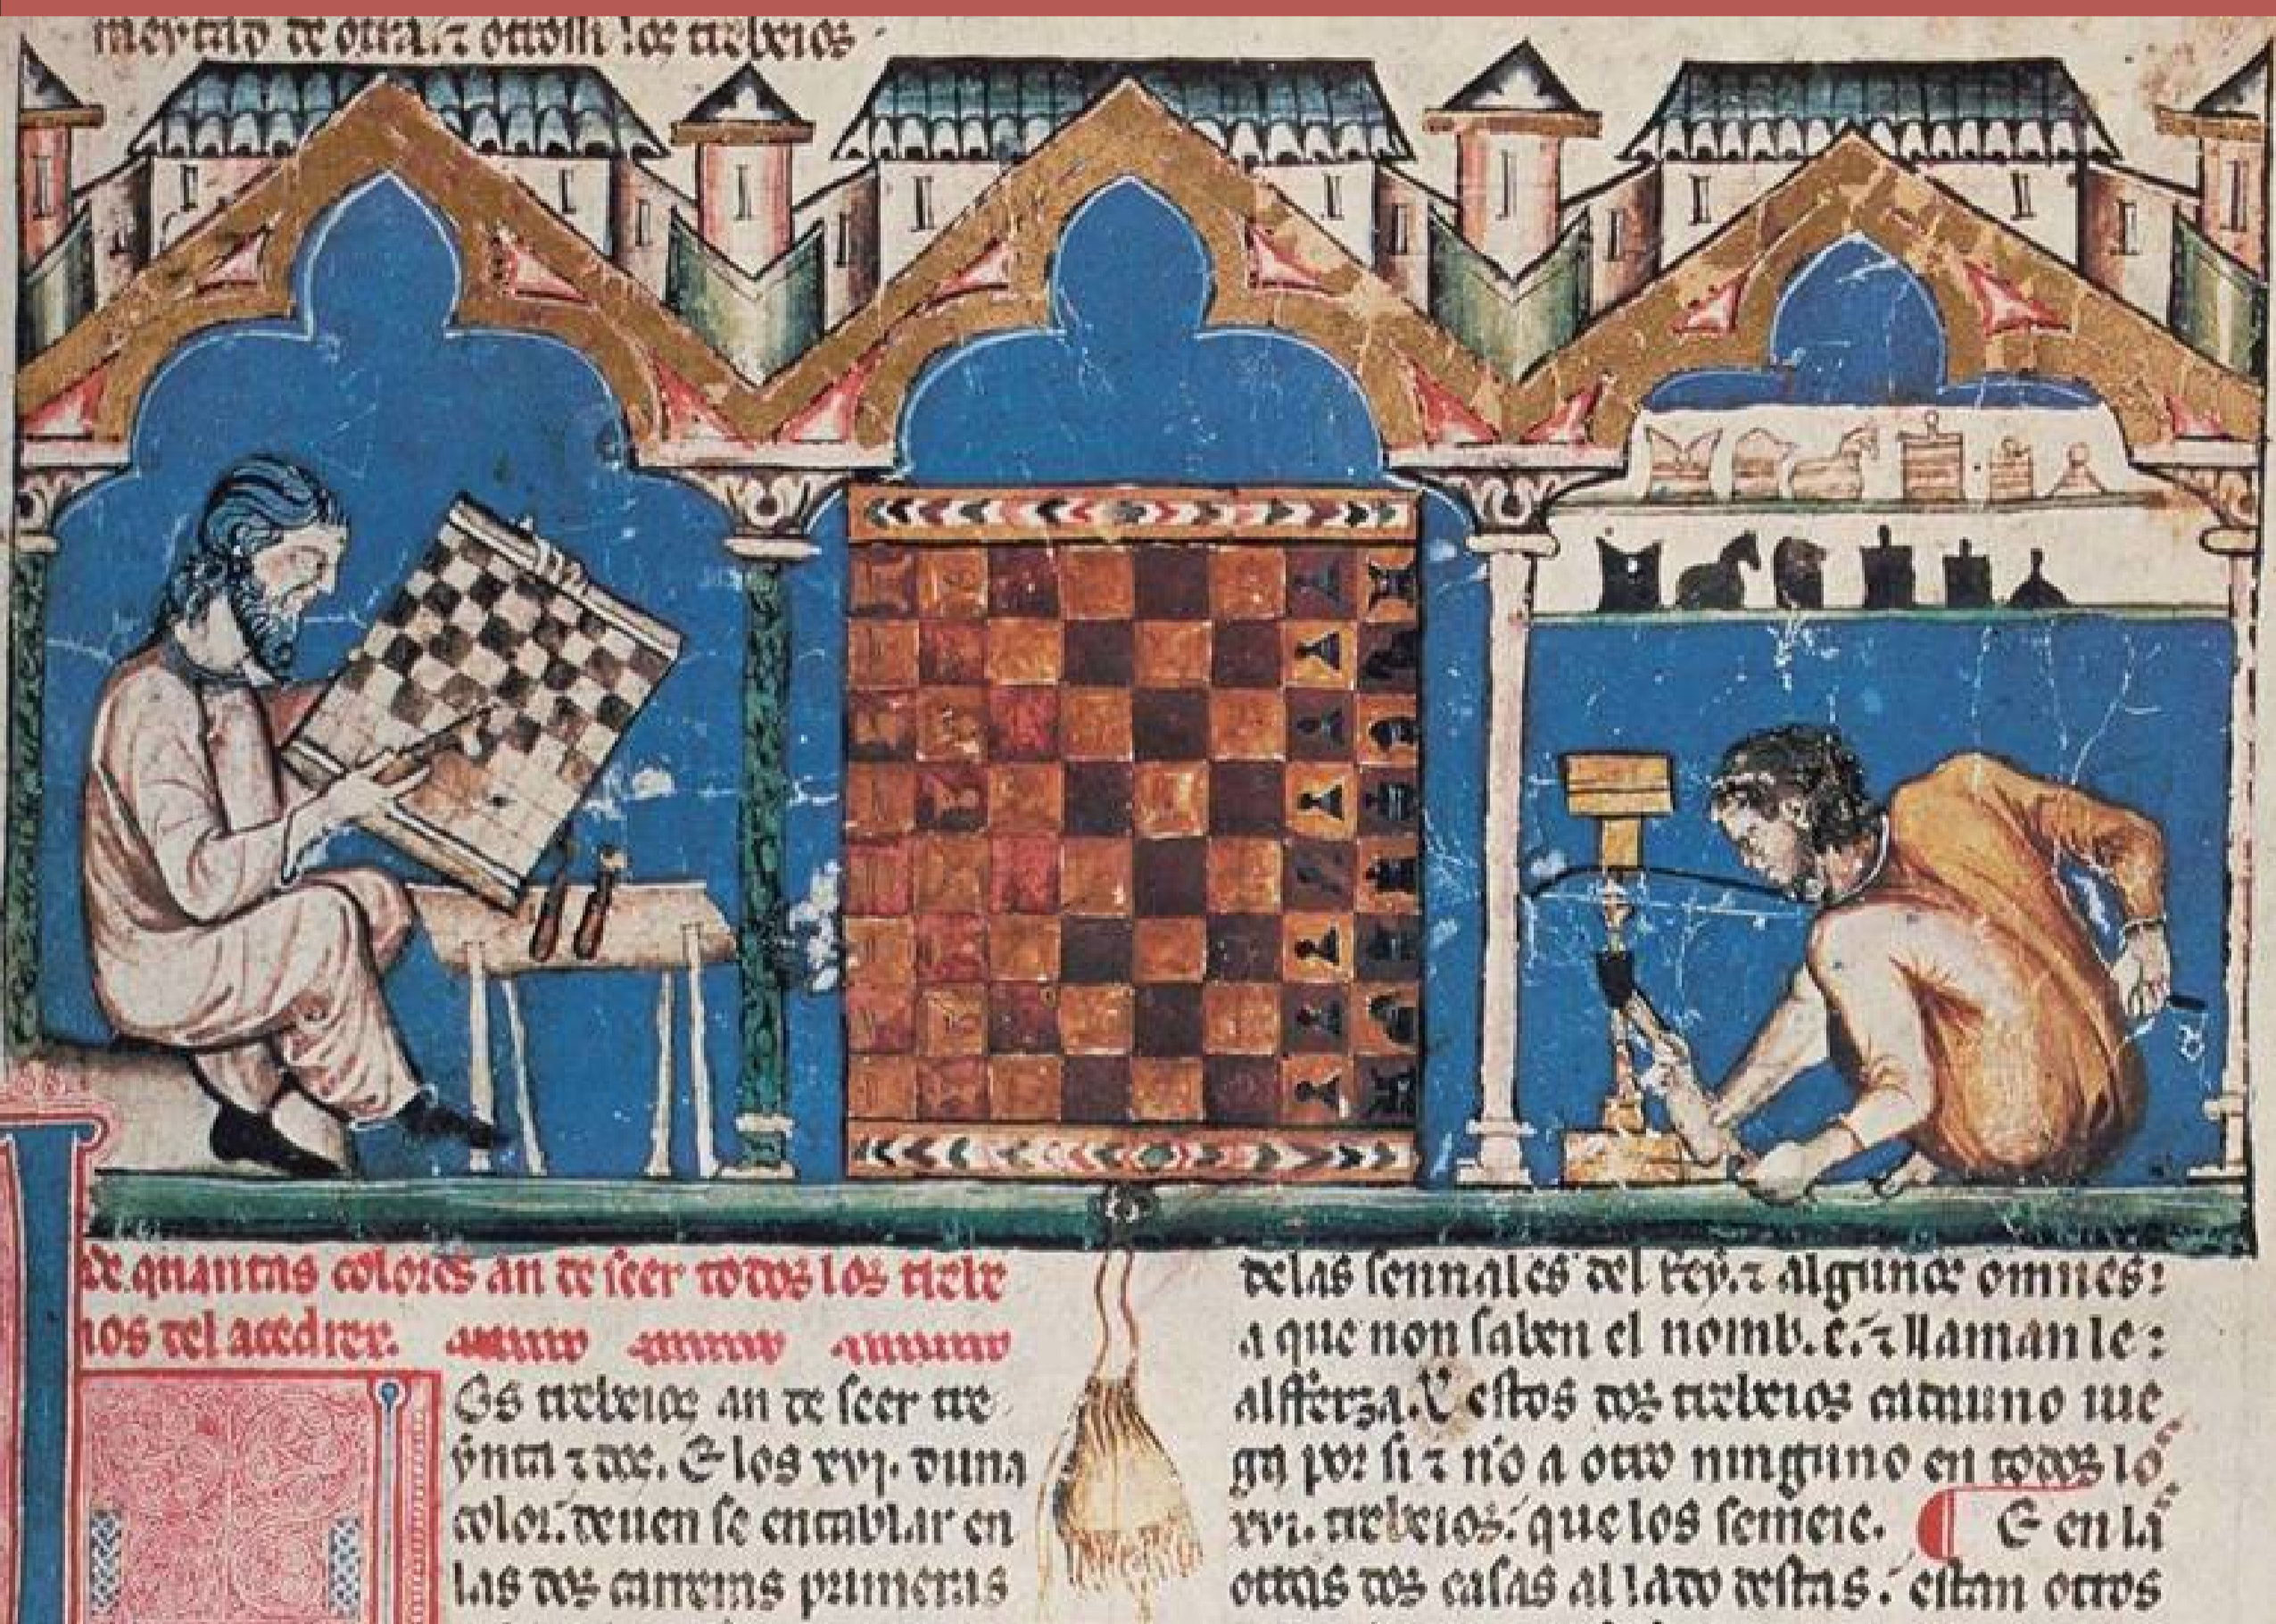 meytad de otra. ⁊ otrossi los trebeios
de quantas colores an de seer todos los trebe
ios del acedrex.
Os trebeios an de seer tre
ynta ⁊ dos. E los xvj. duna
color: deuen se entablar en
las dos carreras primeras
delas sennales del Rey. ⁊ algunos omnes:
a que non saben el nombre. ⁊ llaman le:
alfferza. Y estos dos trebeios cadauno iue
ga por si ⁊ no a otro ninguno en todos los
xvi. trebeios: que los semeie. ¶ E en las
otras dos casas al lado destas: estan otros